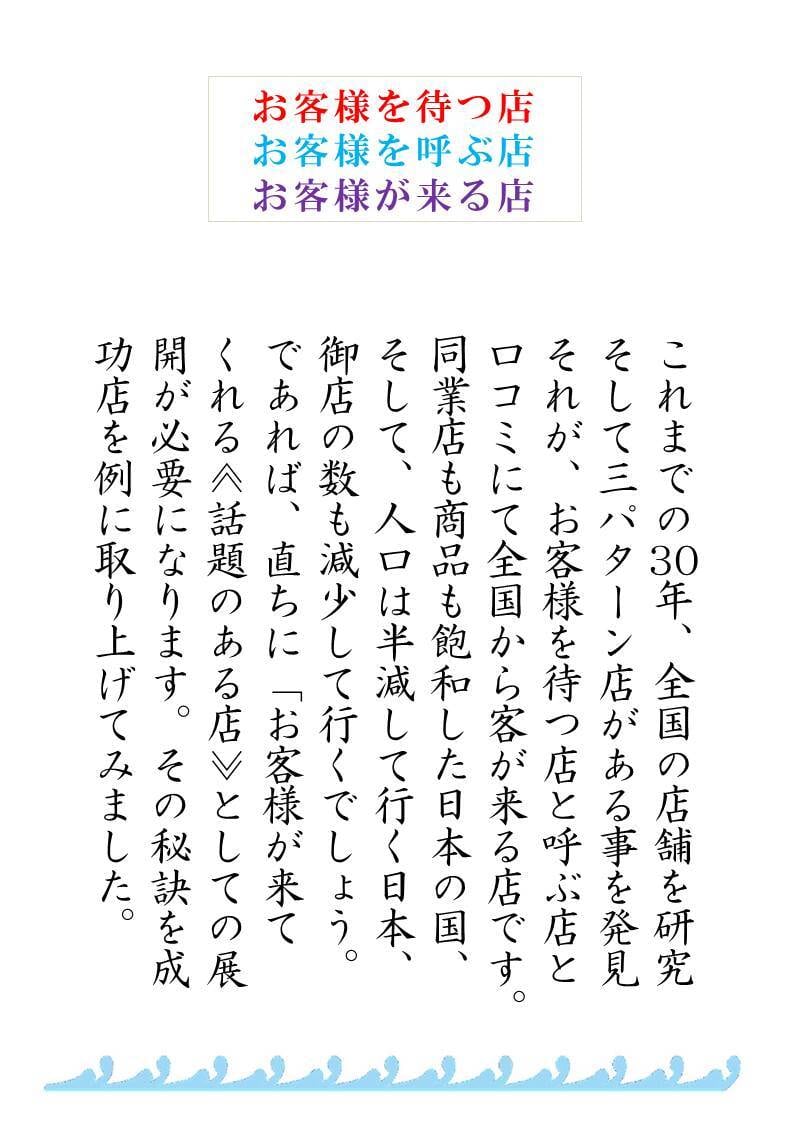 お客様を待つ店
お客様を呼ぶ店
お客様が来る店
これまでの30年、全国の店舗を研究
そして三パターン店がある事を発見
それが、お客様を待つ店と呼ぶ店と
口コミにて全国から客が来る店です。
同業店も商品も飽和した日本の国、
そして、人口は半減して行く日本、
御店の数も減少して行くでしょう。
であれば、直ちに「お客様が来て
くれる≪話題のある店≫としての展
開が必要になります。その秘訣を成
功店を例に取り上げてみました。